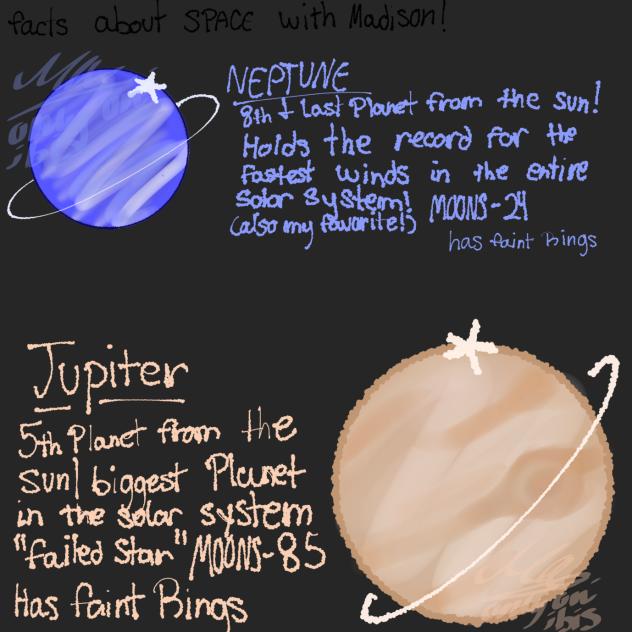 facts about SPACE with Madison!
NEPTUNE
8th + Last Planet from the sun!
Holds the record for the
fastest winds in the entire
solar system!
(also my favorite!)
MOONS-24
has faint Rings
Jupiter
5th Planet from the
sun! biggest Planet
in the solar system
"failed star" MOONS-85
Has faint Rings